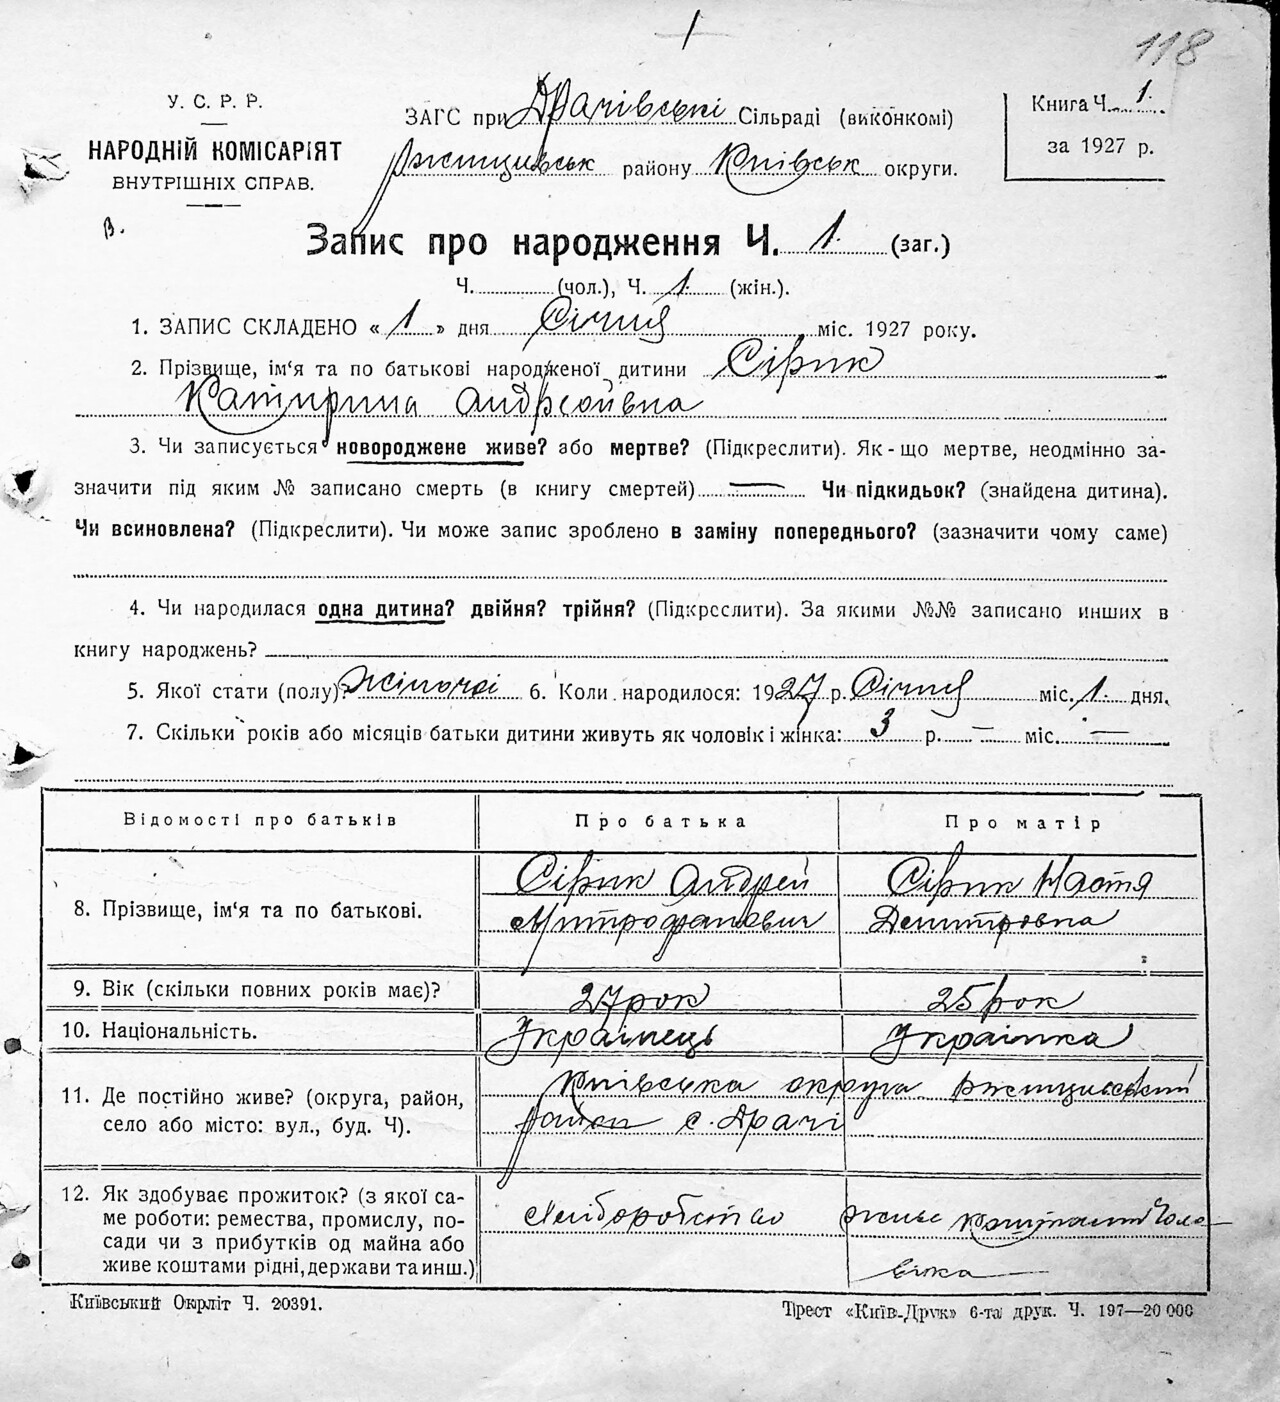 1
118
У. С. Р. Р.
НАРОДНІЙ КОМІСАРІЯТ
ВНУТРІШНІХ СПРАВ.
ЗАГС при Драчівські Сільраді (виконкомі)
Ржищивськ району Київськ округи.
Книга Ч. 1.
за 1927 р.
В.
Запис про народження Ч. 1. (заг.)
Ч. (чол.), Ч. 1. (жін.).
1. ЗАПИС СКЛАДЕНО « 1 » дня Січня міс. 1927 року.
2. Прізвище, ім‘я та по батькові народженої дитини Сірик
Катирина Андреівна
3. Чи записується новороджене живе? або мертве? (Підкреслити). Як-що мертве, неодмінно за-
значити під яким № записано смерть (в книгу смертей) — Чи підкидьок? (знайдена дитина).
Чи всиновлена? (Підкреслити). Чи може запис зроблено в заміну попереднього? (зазначити чому саме)
4. Чи народилася одна дитина? двійня? трійня? (Підкреслити). За якими №№ записано инших в
книгу народжень?
5. Якої стати (полу)? Жіночоі 6. Коли народилося: 1927 р. Січня міс. 1. дня.
7. Скільки років або місяців батьки дитини живуть як чоловік і жінка: 3 р. — міс. —
Відомості про батьків Про батька Про матір
8. Прізвище, ім‘я та по батькові. Сірик Андрей Сірик Настя
Митрофанович Демитровна
9. Вік (скільки повних років має)? 27 рок 25 рок
10. Національність. Українець Українка
11. Де постійно живе? (округа, район, Київська округа Ржищивський
село або місто: вул., буд. Ч). район с. Драчі
12. Як здобуває прожиток? (з якої са-
ме роботи: ремества, промислу, по- Хліборобство живе коштами Чоло
сади чи з прибутків од майна або
живе коштами рідні, держави та инш.) віка
Київський Окрліт Ч. 20391.
Трест «Київ-Друк» 6-та друк. Ч. 197—20 000